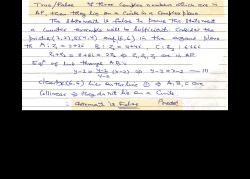 True/False If three complex numbers which are in
AP, then they lie on a circle in a complex plane.
The statement is false to prove the statement
a counter example will be sufficient. Consider the
points (2,2), B(4,4) and (6,6) in the argand plane
A: Z1 = 2+2i B: Z2 = 4+4i C: Z3 : 6+6i
Z1+Z3 = 8+8i = 2Z2 ⇒ Z1, Z2, Z3 are in AP
Eqn of line through AB is
y-2 = (x-2) ⇒ y-x=0
clearly (6,6) lies on the line ⇒ A, B, C are
Collinear ⇒ they do not lie on a circle
Statement is False Proved